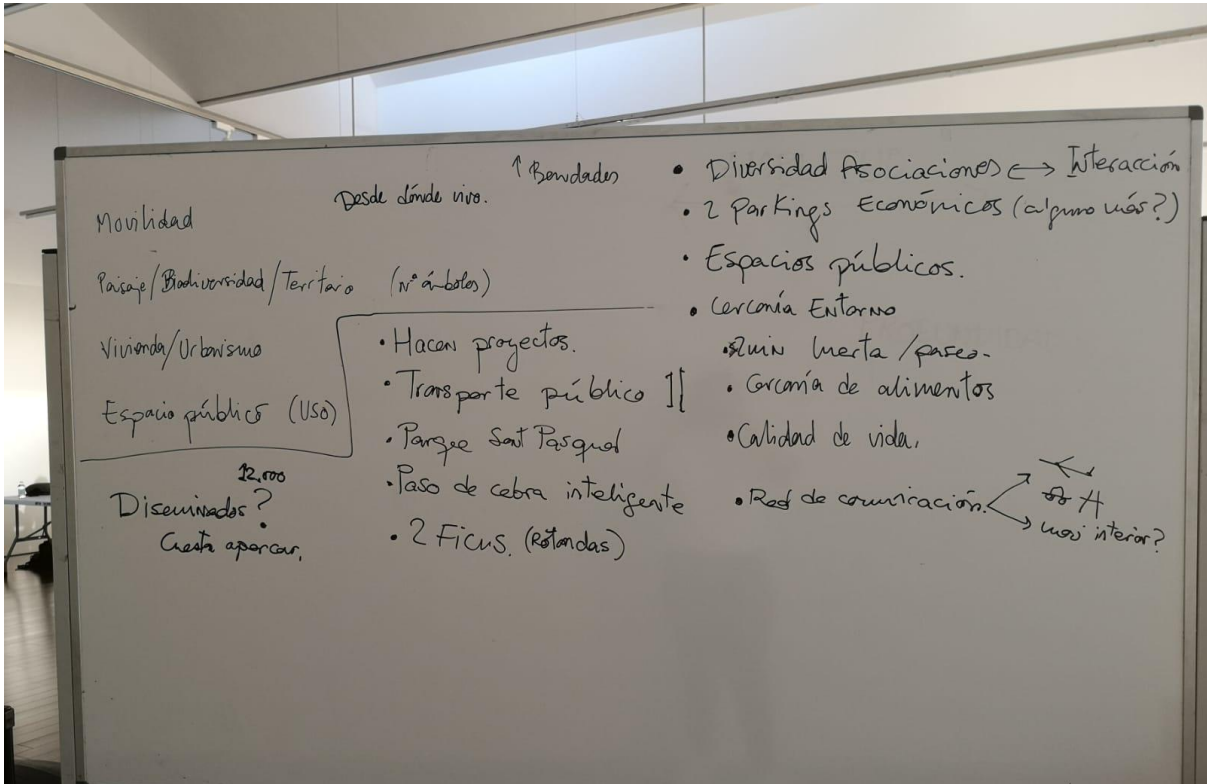 ↑ Bondades
Desde dónde vivo.
Movilidad
Paisaje/Biodiversidad/Territorio (Nº árboles)
Vivienda/Urbanismo
Espacio público (USO)
12.000
Diseminados?
Cuesta aparcar.
• Hacen proyectos.
• Transporte público
• Parque Sant Pasqual
• Paso de cebra inteligente
• 2 Ficus. (Rotondas)
• Diversidad Asociaciones ↔ Interacción
• 2 Parkings Económicos (alguno más?)
• Espacios públicos.
• Cercanía Entorno
huerta/paseo.
• Cercanía de alimentos
• Calidad de vida.
• Red de comunicación.
interior?